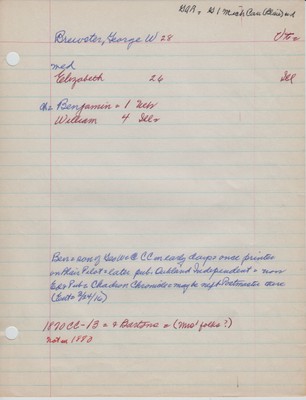 GAR, G 1 Mich Cav (Blair) ord
Brewster, George W 28
med
Elizabeth 26 Ill
ch = Benjamin = 1 Nebr
William 4 Ill =
Ben = son of Geo = @ CC in early days once printer
on Blair Pilot = later pub. Oakland Independent = now
Ed & Pub = Chadron Chronicle = maybe apt Postmaster there
(Ent = 3/24/16)
1870 CC - 13 = & Bartons = (Mrs' folks?)
not in 1880